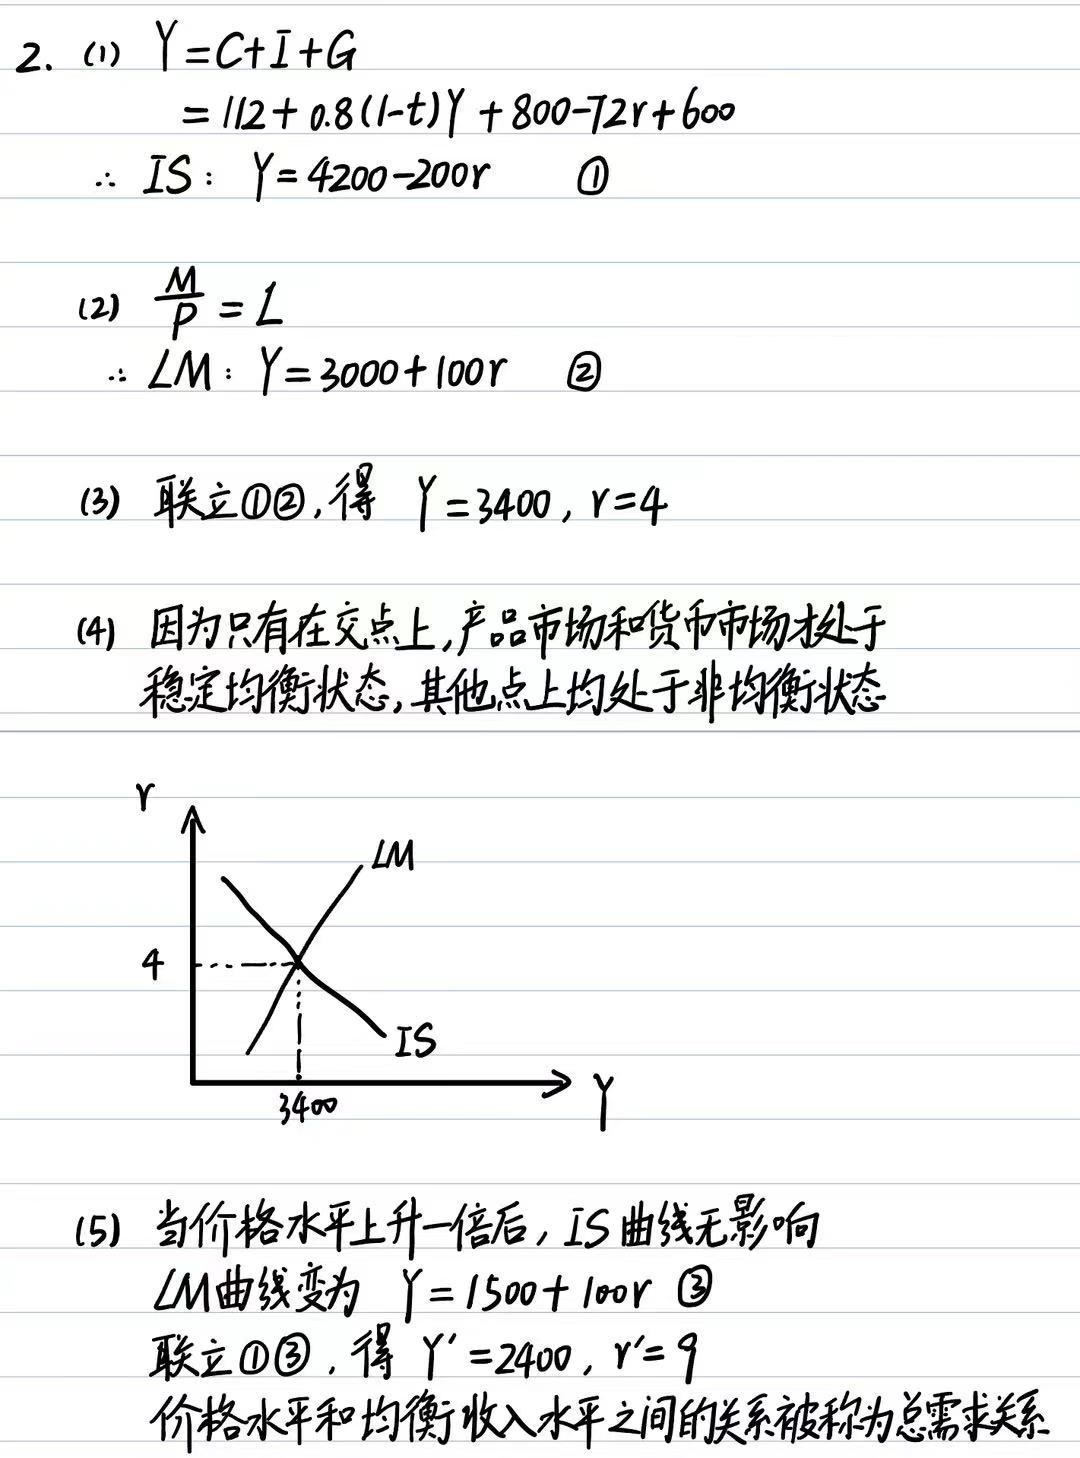 2. (1) Y=C+I+G
=112+0.8(1-t)Y+800-72r+600
∴ IS: Y=4200-200r ①
(2) M/P=L
∴ LM: Y=3000+100r ②
(3) 联立①②,得 Y=3400, r=4
(4) 因为只有在交点上,产品市场和货币市场才处于
稳定均衡状态,其他点上均处于非均衡状态
r
LM
4
IS
3400
Y
(5) 当价格水平上升一倍后, IS曲线无影响
LM曲线变为 Y=1500+100r ③
联立①③,得 Y'=2400, r'=9
价格水平和均衡收入水平之间的关系被称为总需求关系